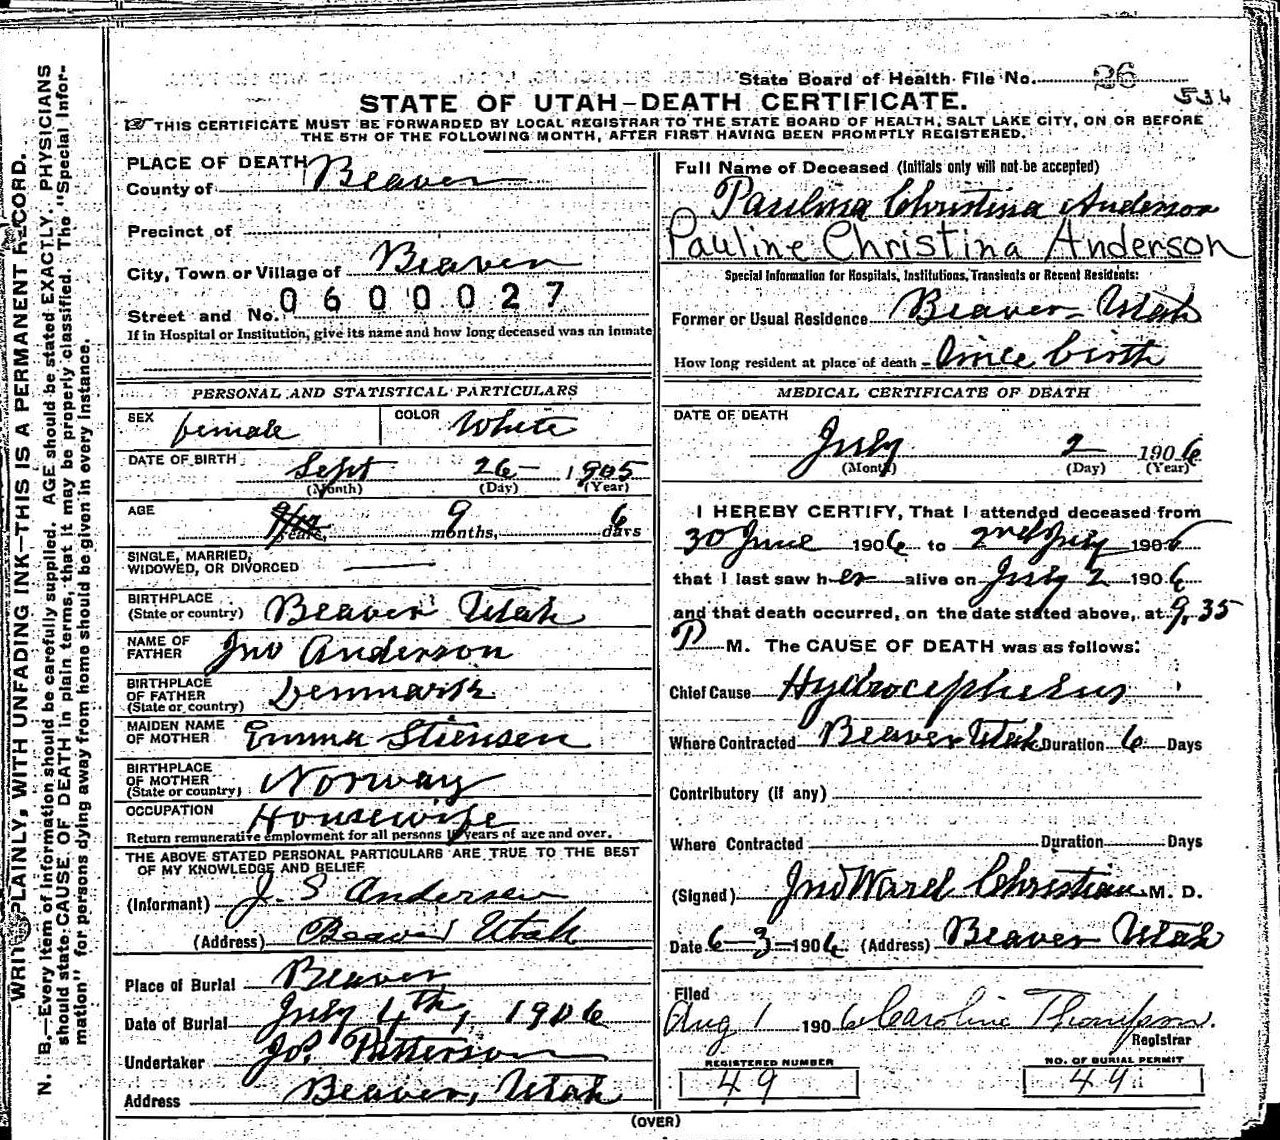 WRITE PLAINLY, WITH UNFADING INK—THIS IS A PERMANENT RECORD.
N. B.—Every item of information should be carefully supplied. AGE should be stated EXACTLY. PHYSICIANS
should state CAUSE OF DEATH in plain terms, that it may be properly classified. The "Special Infor-
mation" for persons dying away from home should be given in every instance.
State Board of Health File No. 26
536
STATE OF UTAH—DEATH CERTIFICATE.
THIS CERTIFICATE MUST BE FORWARDED BY LOCAL REGISTRAR TO THE STATE BOARD OF HEALTH, SALT LAKE CITY, ON OR BEFORE
THE 5TH OF THE FOLLOWING MONTH, AFTER FIRST HAVING BEEN PROMPTLY REGISTERED.
PLACE OF DEATH
County of Beaver
Precinct of
City, Town or Village of Beaver
0600027
Street and No.
If in Hospital or Institution, give its name and how long deceased was an inmate
PERSONAL AND STATISTICAL PARTICULARS
SEX female COLOR White
DATE OF BIRTH Sept 26 1905
(Month) (Day) (Year)
AGE 9/12 years, 9 months, 6 days
SINGLE, MARRIED,
WIDOWED, OR DIVORCED
BIRTHPLACE
(State or country) Beaver Utah
NAME OF
FATHER Jno Anderson
BIRTHPLACE
OF FATHER
(State or country) Denmark
MAIDEN NAME
OF MOTHER Emma Stiensen
BIRTHPLACE
OF MOTHER
(State or country) Norway
OCCUPATION Housewife
Return remunerative employment for all persons 15 years of age and over.
THE ABOVE STATED PERSONAL PARTICULARS ARE TRUE TO THE BEST
OF MY KNOWLEDGE AND BELIEF
(Informant) J. S Andersen
(Address) Beaver Utah
Place of Burial Beaver
Date of Burial July 4th, 1906
Undertaker Jos Patterson
Address Beaver, Utah
Full Name of Deceased (Initials only will not be accepted)
Paulina Christina Anderson
Pauline Christina Anderson
Special Information for Hospitals, Institutions, Transients or Recent Residents:
Former or Usual Residence Beaver - Utah
How long resident at place of death Since birth
MEDICAL CERTIFICATE OF DEATH
DATE OF DEATH
July 2 1906
(Month) (Day) (Year)
I HEREBY CERTIFY, That I attended deceased from
30 June 1906 to 2nd July 1906
that I last saw her alive on July 2 1906
and that death occurred, on the date stated above, at 9.35
P M. The CAUSE OF DEATH was as follows:
Chief Cause Hydrocephelus
Where Contracted Beaver Utah Duration 6 Days
Contributory (if any)
Where Contracted Duration Days
(Signed) Jno Ward Christian M. D.
Date 6-3-1906 (Address) Beaver Utah
Filed
Aug 1 1906 Caroline Thompson.
Registrar
REGISTERED NUMBER
49
NO. OF BURIAL PERMIT
49
(OVER)